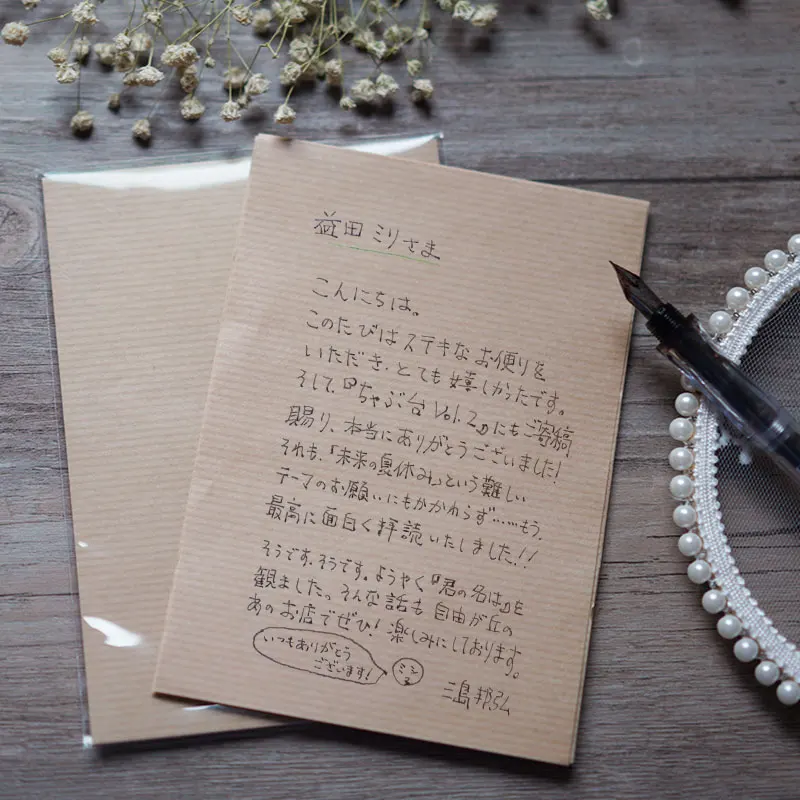 益田ミリさま
こんにちは。
このたびはステキなお便りを
いただき、とても嬉しかったです。
そして、『ちゃぶ台Vol.2』にもご寄稿
賜り、本当にありがとうございました!
それも、「未来の夏休み」という難しい
テーマのお願いにもかかわらず……もう、
最高に面白く拝読いたしました!!
そうです、そうです。ようやく『君の名は』を
観ました。そんな話も自由が丘の
あのお店でぜひ!楽しみにしております。
いつもありがとう
ございます!
三島邦弘